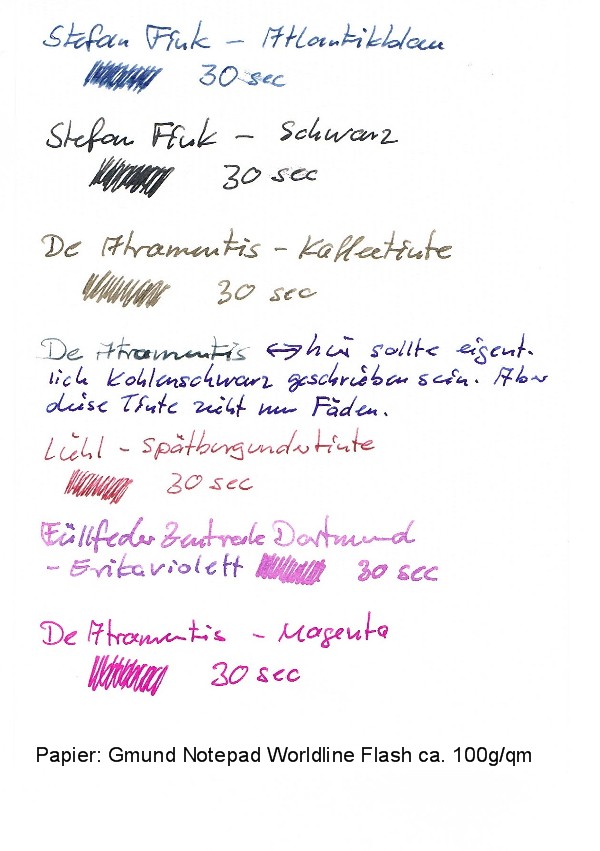 Stefan Fink - Atlantikblau
30 sec
Stefan Fink - Schwarz
30 sec
De Atramentis - Kaffeetinte
30 sec
De Atramentis ↔ hier sollte eigent-
lich Kohlenschwarz geschrieben sein. Aber
diese Tinte zieht nur Fäden.
Lühl - Spätburgundertinte
30 sec
Füllfeder Zentrale Dortmund
- Erikaviolett 30 sec
De Atramentis - Magenta
30 sec
Papier: Gmund Notepad Worldline Flash ca. 100g/qm